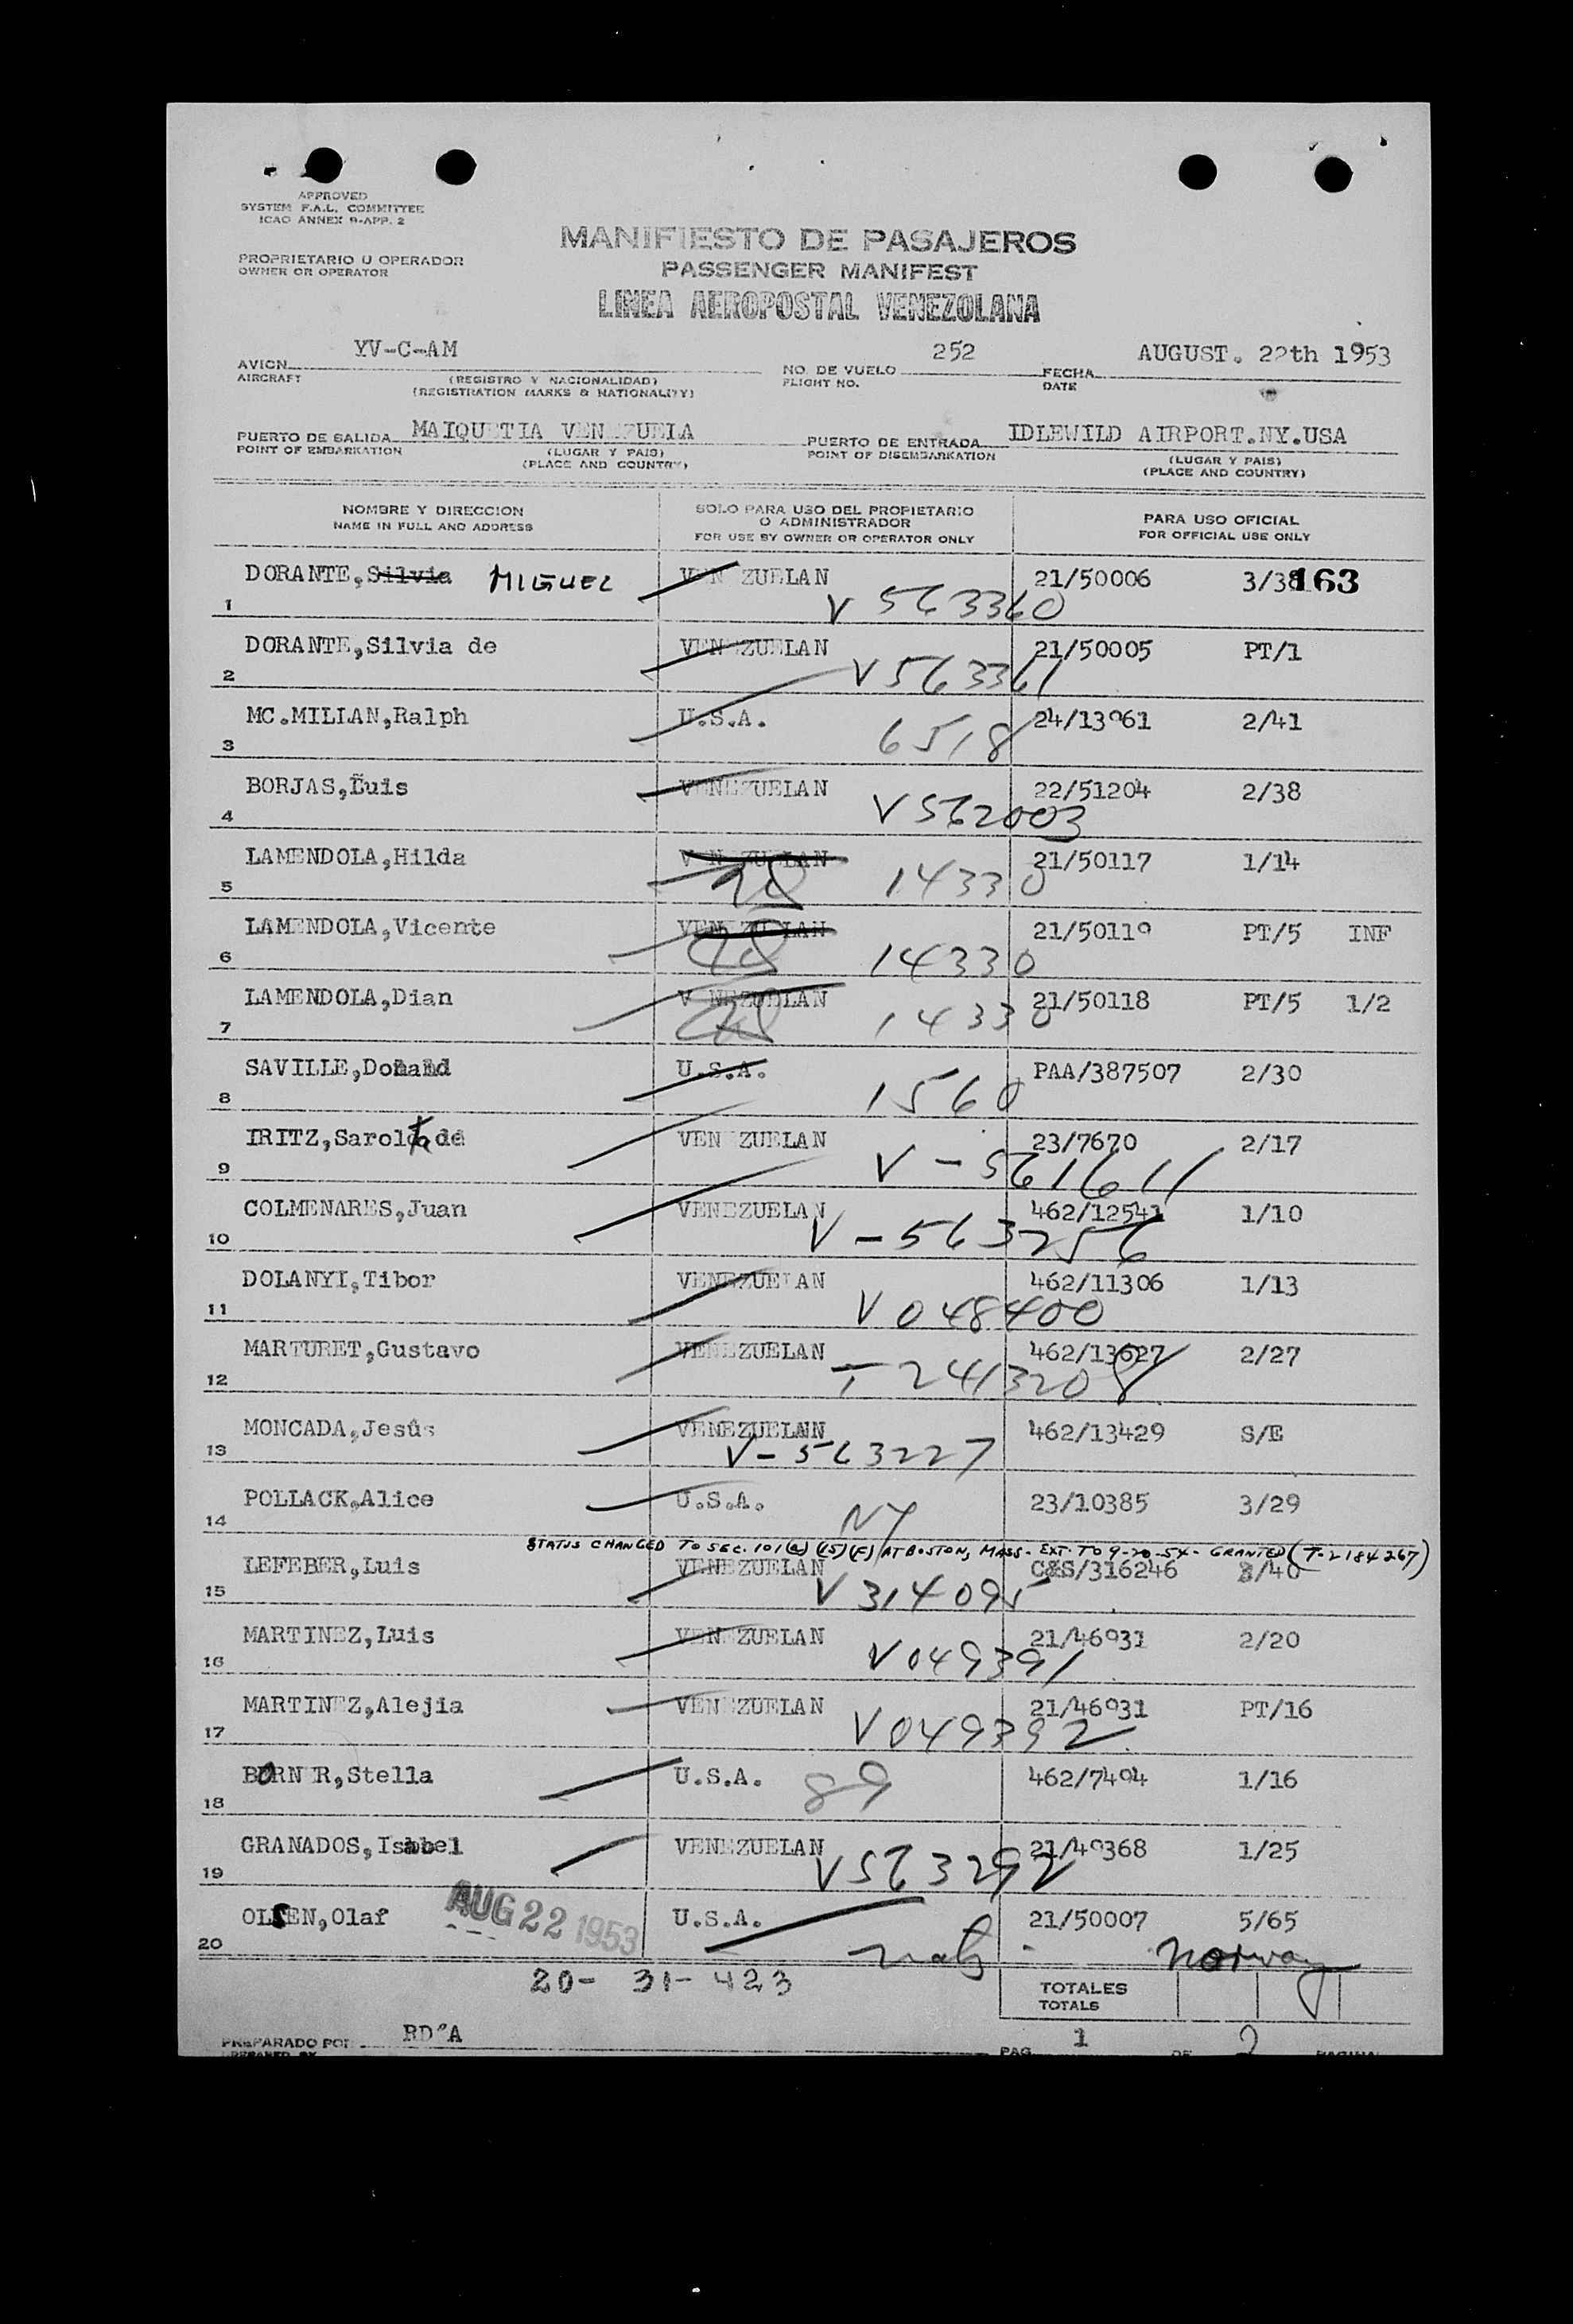 APPROVED
SYSTEM F.A.L. COMMITTEE
ICAO ANNEX 9-APP. 2
MANIFIESTO DE PASAJEROS
PROPRIETARIO U OPERADOR
OWNER OR OPERATOR
PASSENGER MANIFEST
LINEA AEROPOSTAL VENEZOLANA
AVION YV-C-AM NO. DE VUELO 252 FECHA AUGUST. 22th 1953
AIRCRAFT (REGISTRO Y NACIONALIDAD) FLIGHT NO. DATE
(REGISTRATION MARKS & NATIONALITY)
PUERTO DE SALIDA MAIQUETIA VENEZUELA PUERTO DE ENTRADA IDLEWILD AIRPORT.NY.USA
POINT OF EMBARKATION (LUGAR Y PAIS) POINT OF DISEMBARKATION (LUGAR Y PAIS)
(PLACE AND COUNTRY) (PLACE AND COUNTRY)
NOMBRE Y DIRECCION SOLO PARA USO DEL PROPIETARIO O ADMINISTRADOR PARA USO OFICIAL
NAME IN FULL AND ADDRESS FOR USE BY OWNER OR OPERATOR ONLY FOR OFFICIAL USE ONLY
DORANTE,Silvia MIGUEL VENEZUELAN 21/50006 3/38 163
1 V 563360
DORANTE,Silvia de VENEZUELAN 21/50005 PT/1
2 V 563361
MC.MILIAN,Ralph U.S.A. 24/13961 2/41
3 6518
BORJAS,Luis VENEZUELAN 22/51204 2/38
4 V 562003
LAMENDOLA,Hilda VENEZUELAN 21/50117 1/14
5 14330
LAMENDOLA,Vicente VENEZUELAN 21/50119 PT/5 INF
6 14330
LAMENDOLA,Dian VENEZUELAN 21/50118 PT/5 1/2
7 14330
SAVILLE,Donald U.S.A. PAA/387507 2/30
8 1560
IRITZ,Sarolta de VENEZUELAN 23/7670 2/17
9 V-561611
COLMENARES,Juan VENEZUELAN 462/12541 1/10
10 V-563256
DOLANYI,Tibor VENEZUELAN 462/11306 1/13
11 V 048400
MARTURET,Gustavo VENEZUELAN 462/13627 2/27
12 T 2413208
MONCADA,Jesûs VENEZUELNN 462/13429 S/E
13 V-563227
POLLACK,Alice U.S.A. 23/10385 3/29
14 NY
STATUS CHANGED TO SEC. 101(a)(15)(F) AT BOSTON, MASS - EXT. TO 9-20-54 - GRANTED (T-2184267)
LEFEBER,Luis VENEZUELAN C&S/316246 3/40
15 V 314095
MARTINEZ,Luis VENEZUELAN 21/46931 2/20
16 V049391
MARTINEZ,Alejia VENEZUELAN 21/46931 PT/16
17 V049392
BORNER,Stella U.S.A. 462/7494 1/16
18 89
GRANADOS,Isabel VENEZUELAN 21/49368 1/25
19 V563292
OLSEN,Olaf U.S.A. 21/50007 5/65
20 AUG 22 1953 Norway
20- 31- 423
TOTALES
TOTALS
PREPARADO POR RD"A PAG. 1 DE 2 PAGINA
PREPARED BY